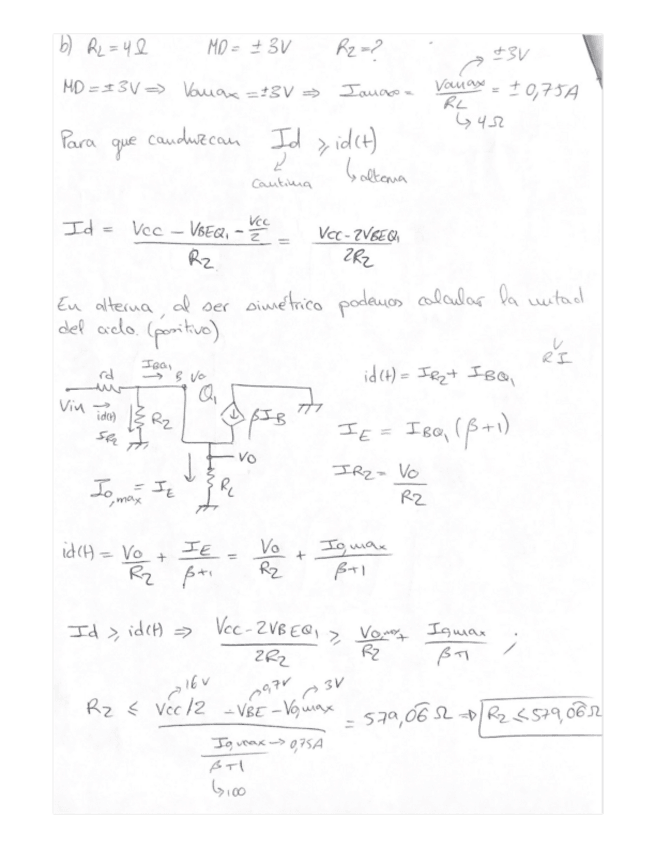 b) RL = 4Ω MD = ± 3V R2 = ?
MD = ± 3V ⇒ Vomax = ±3V ⇒ Iomax = Vomax/RL = ± 0,75A
±3V
↳ 4Ω
Para que conduzcan Id ≥ id(t)
continua
↳ alterna
Id = (Vcc - VBEQ1 - Vcc/2)/R2 = (Vcc - 2VBEQ1)/2R2
En alterna, al ser simétrico podemos calcular la mitad
del ciclo. (positivo)
V
R I
IBQ1
rd B Vo Q1
id(t) = IR2 + IBQ1
Vin → id(t) R2 βIB
IR2
IE = IBQ1 (β+1)
Vo
IR2 = Vo/R2
Io,max = IE RL
id(t) = Vo/R2 + IE/(β+1) = Vo/R2 + Io,max/(β+1)
Id ≥ id(t) ⇒ (Vcc - 2VBEQ1)/2R2 ≥ Vo,max/R2 + Iomax/(β+1) ;
16V 0,7V 3V
R2 ≤ (Vcc/2 - VBE - Vomax)/(Iomax/(β+1)) = 579,06 Ω ⇒ R2 ≤ 579,06 Ω
→ 0,75A
↳ 100